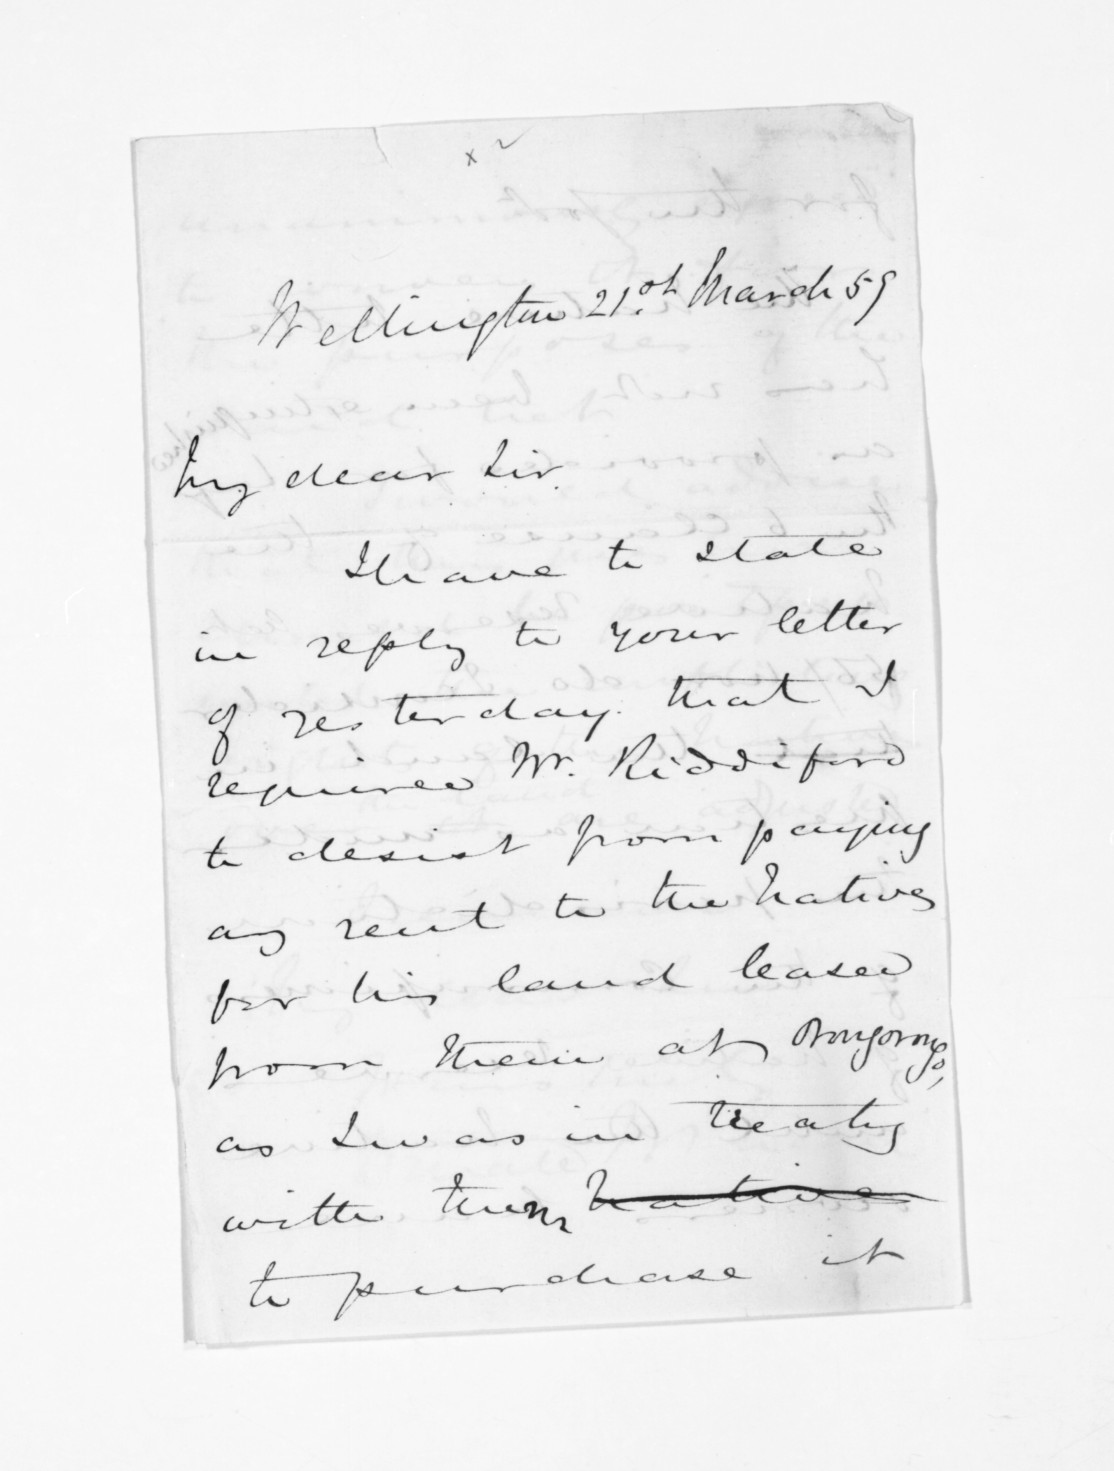 Wellington 21st March 59
My dear Sir.
I have to state
in reply to your letter
of yesterday that I
required Mr. Riddiford
to desist from paying
any rent to the Natives
for his land leased
from them at Orongorongo,
as I was in treaty
with them Natives
to purchase it